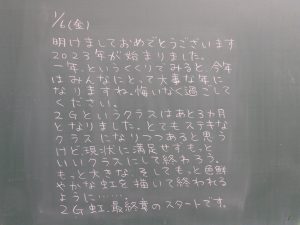 1/6(金)
明けましておめでとうございます
2023年が始まりました。
一年、というくくりでみると、今年
はみんなにとって大事な年に
なりますね。悔いなく過ごして
ください。
2Gというクラスはあと3ヵ月
となりました。とてもステキな
クラスになりつつあると思う
けど現状に満足せずもっと
いいクラスにして終わろう。
もっと大きな、そしてもっと色鮮
やかな虹を描いて終われる
ように……
2G虹、最終章のスタートです。